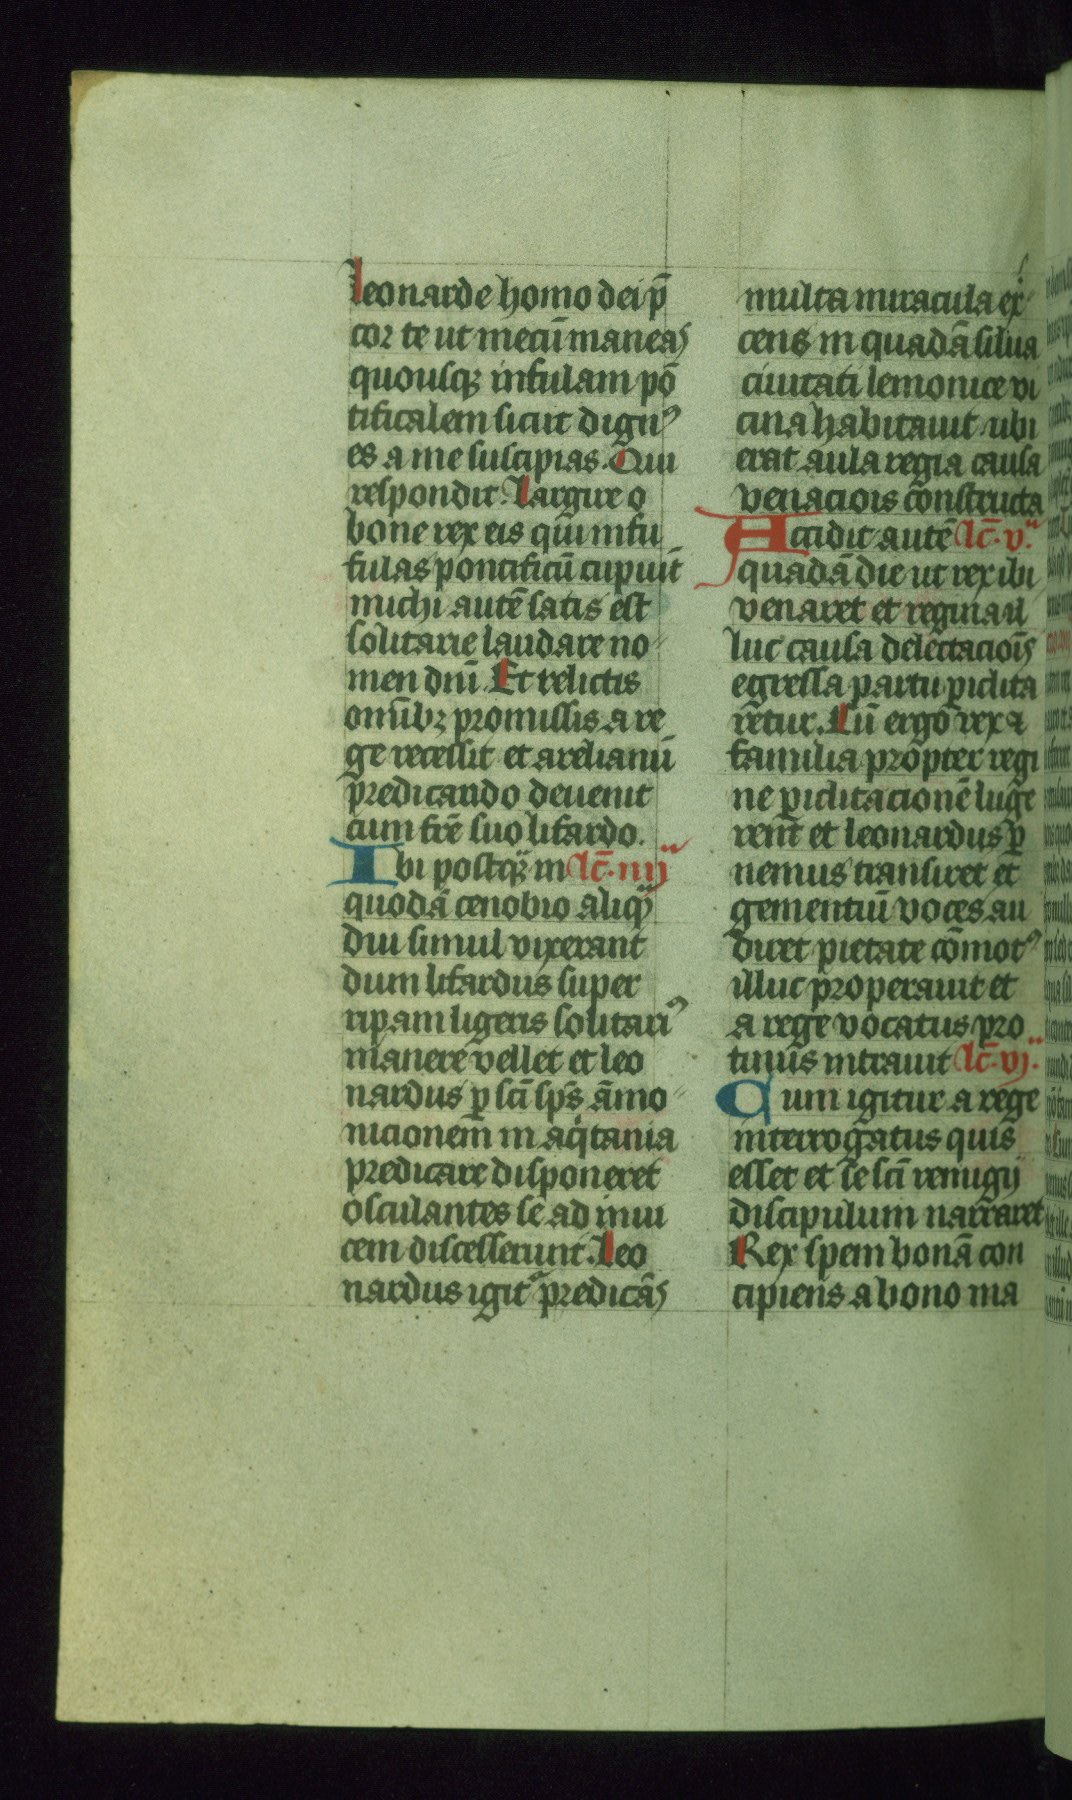 Leonarde homo dei p̄
cor te ut mecū maneas
quousqꝫ infulam pō
tificalem sicut dignꝰ
es a me suscipias. Cui
respondit. Largire o
bone rex eis qui infu
fulas pontificū cupiūt
michi autē satis est
solitarie laudare no
men dn̄i. Et relictis
om̄ibꝫ promissis a re
ge recessit et arelianū
predicando deuenit
cum fr̄e suo lifardo.
Ibi postqꝫ in lc̄. iiijᵃ
quodā cenobio aliqͣ
diu simul vixerant
dum lifardus super
ripam ligeris solitariꝰ
manere vellet et leo
nardus ꝑ sc̄i sp̄s āmo
nicionem in aqͥtania
predicare disponeret
osculantes se ad inui
cem discesserunt. Leo
nardus igitͬ predicās
multa miracula ex
cens in quadā silua
ciuitati lemonice vi
cina habitauit ubi
erat aula regia causa
venaciois constructa
Accidit autē lc̄. vᵃ.
quadā die ut rex ibi
venaret et regina il
luc causa delectaciois
egressa partu ꝑiclita
retur. Cū ergo rex ⁊
familia propter regi
ne ꝑiclitacionē luge
rent et leonardus ꝑ
nemus transiret et
gementiū voces au
diret pietate cōmotꝰ
illuc properauit et
a rege vocatus pro
tinus intrauit lc̄. vjᵃ.
Cum igitur a rege
interrogatus quis
esset et se sc̄i remigij
discipulum narraret
Rex spem bonā con
cipiens a bono ma